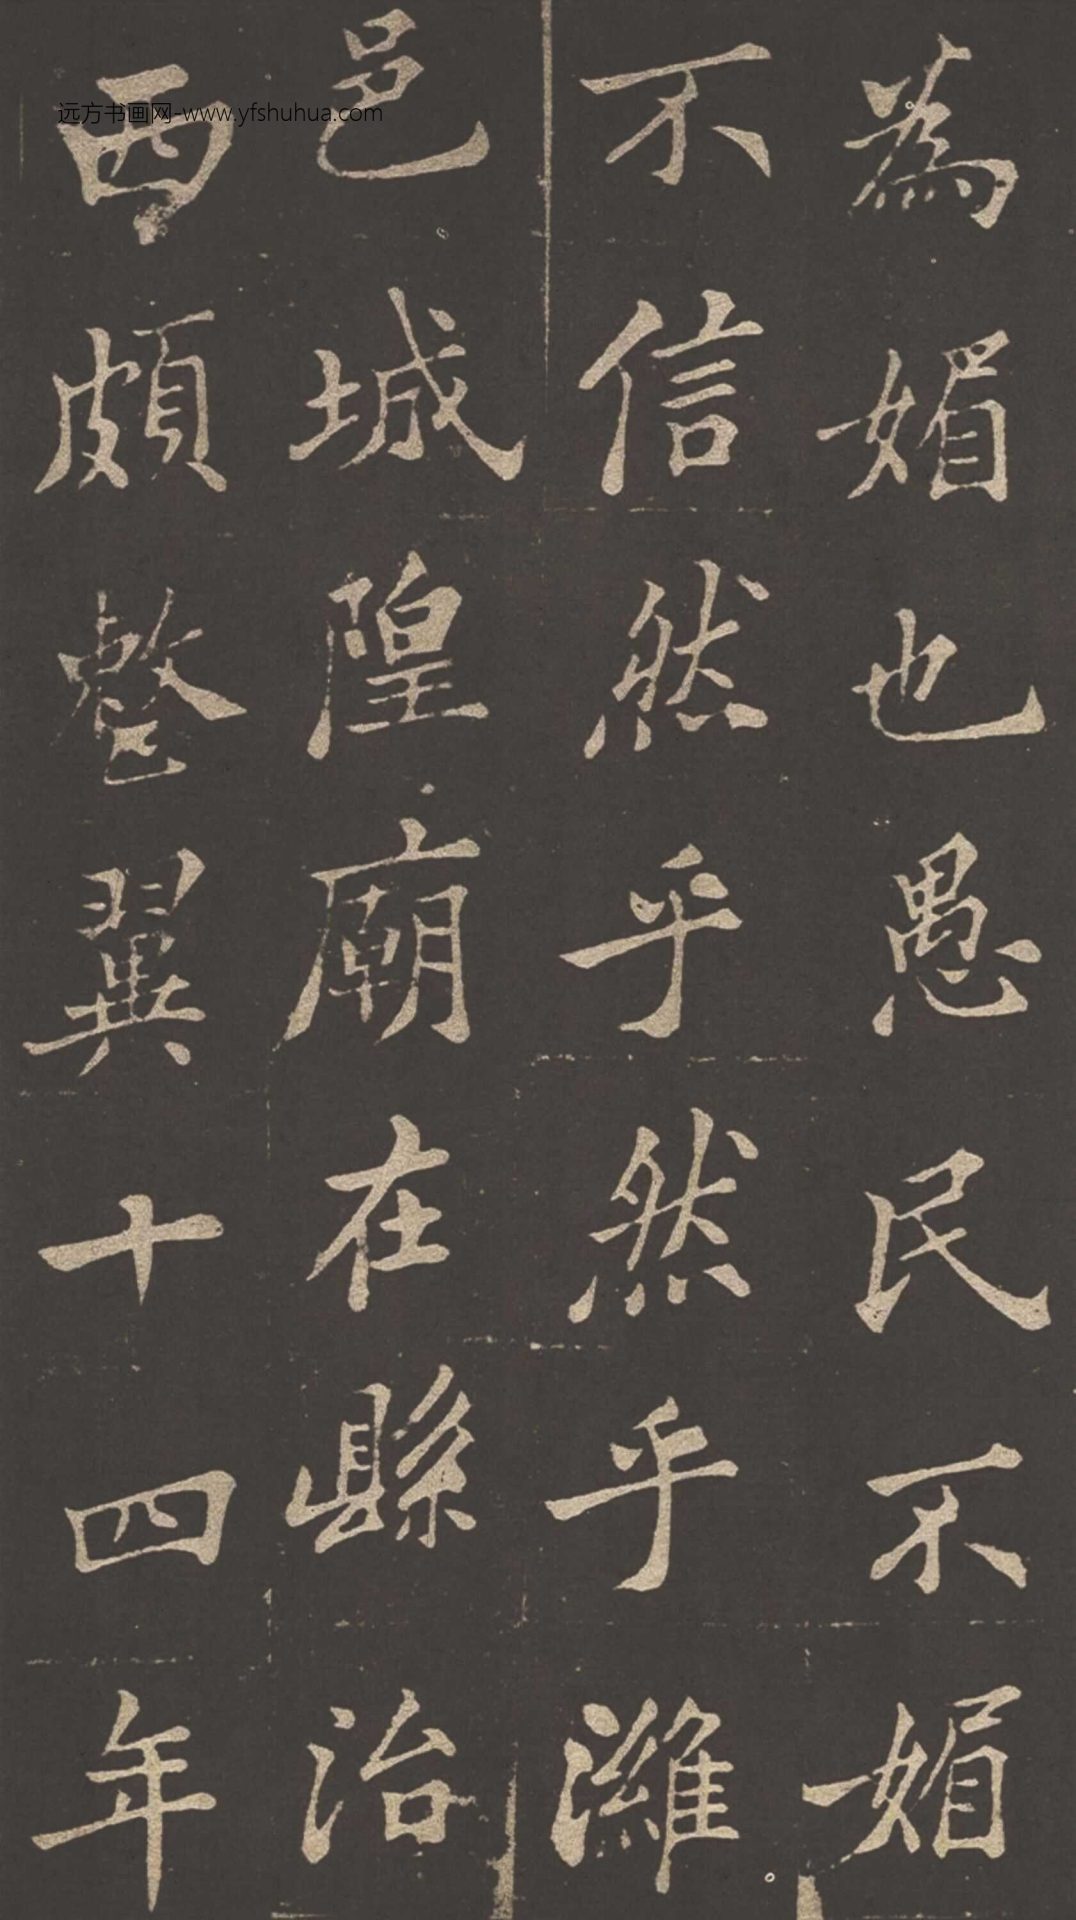 為媚也愚民不媚
不信然乎然乎濰
邑城隍廟在縣治
西頗整翼十四年
远方书画网-www.yfshuhua.com